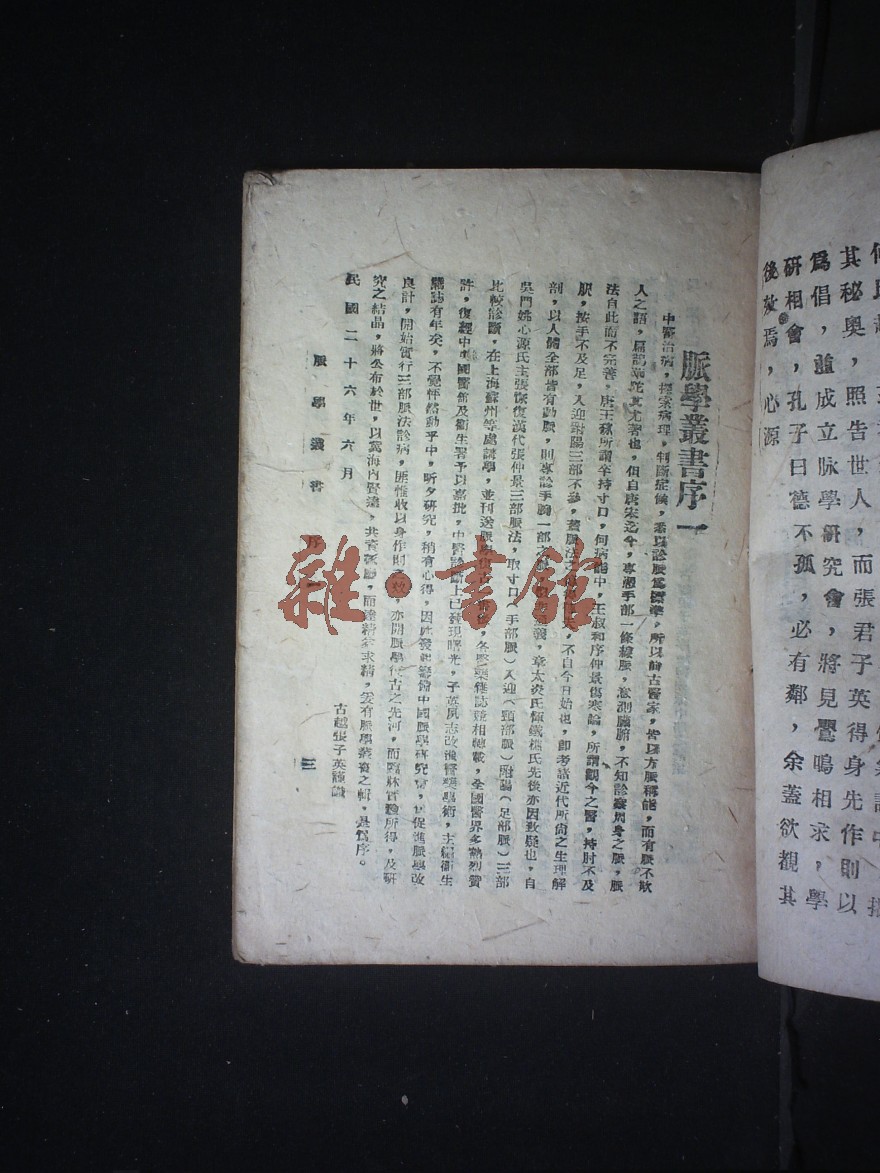 其秘奧，照告世人，而張君子英得身先作則以
爲倡，並成立脉學研究會，將見鸎鳴相求，學
研相會，孔子曰德不孤，必有鄰，余蓋欲觀其
後效焉，心源
脈學叢書序一
中醫治病，探索病理，判斷症候，悉以診脈爲標準，所以前古醫家，皆以方脈稱能，而有脈不欺
人之語，扁鵲華陀其尤著也，但自唐宋迄今，專憑手部一條線脈，意測臟腑，不知診察周身之脈，脈
法自此而不完善，唐王燾所謂卒持寸口，何病能中，王叔和序仲景傷寒論，所謂觀今之醫，持肘不及
尺，按手不及足，人迎趺陽三部不參，舊脈法之，不自今日始也，即考諸近代所尙之生理解
剖，以人體全部皆有動脈，則專診手腕一部之脈，章太炎氏惲鐵樵氏先後亦因致疑也，自
吳門姚心源氏主張恢復漢代張仲景三部脈法，取寸口（手部脈）人迎（頸部脈）趺陽（足部脈）三部
比較診斷，在上海蘇州等處講學，並刊送脈學復古，各醫藥雜誌競相轉載，全國醫界多熱烈贊
許，復經中央國醫館及衞生署予以嘉批，中醫診斷上已發現曙光，子英夙志改進醫藥學術，主編衞生
雜誌有年矣，不覺怦然動乎中，昕夕研究，稍有心得，因此發起籌備中國脈學研究會，以促進脈學改
良計，開始實行三部脈法診病，匪惟收以身作則之效，亦開脈學復古之先河，而臨牀實驗所得，及研
究之結晶，將公布於世，以冀海內賢達，共資，而達精益求精，爰有脈學叢書之輯，是爲序。
民國二十六年六月
古越張子英謹識
脈學叢書 序一
三
雜·書館